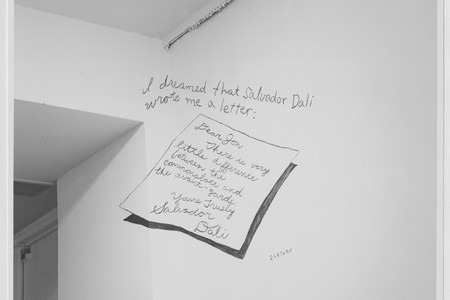 I dreamed that Salvador Dali
wrote me a letter:
Dear Jon
There is very
little difference
between the
commonplace and
the avant-garde
Yours Truely
Salvador
Dali